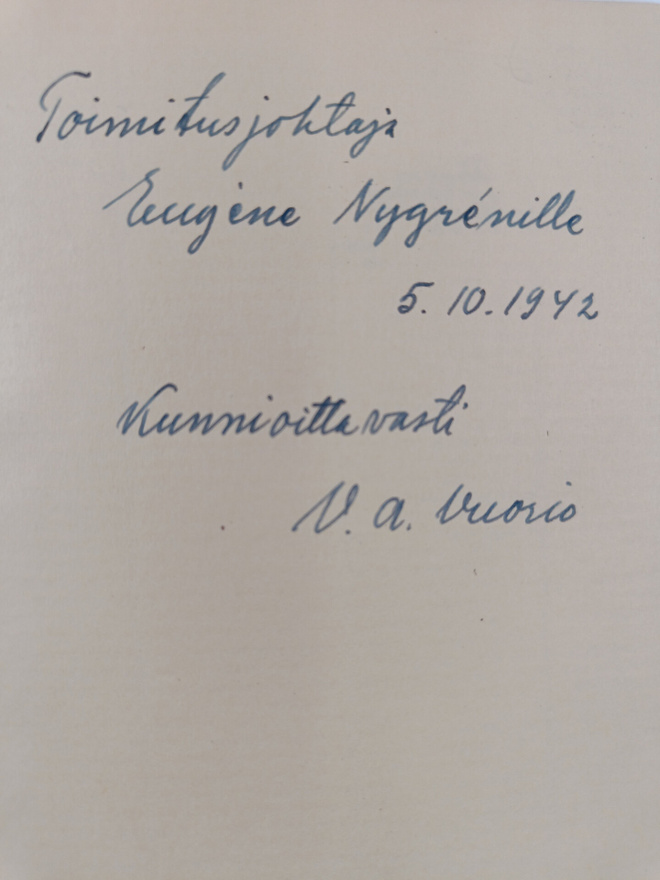 Toimitusjohtaja
Eugène Nygrénille
5. 10. 1942
Kunnioittavasti
V. A. Vuorio